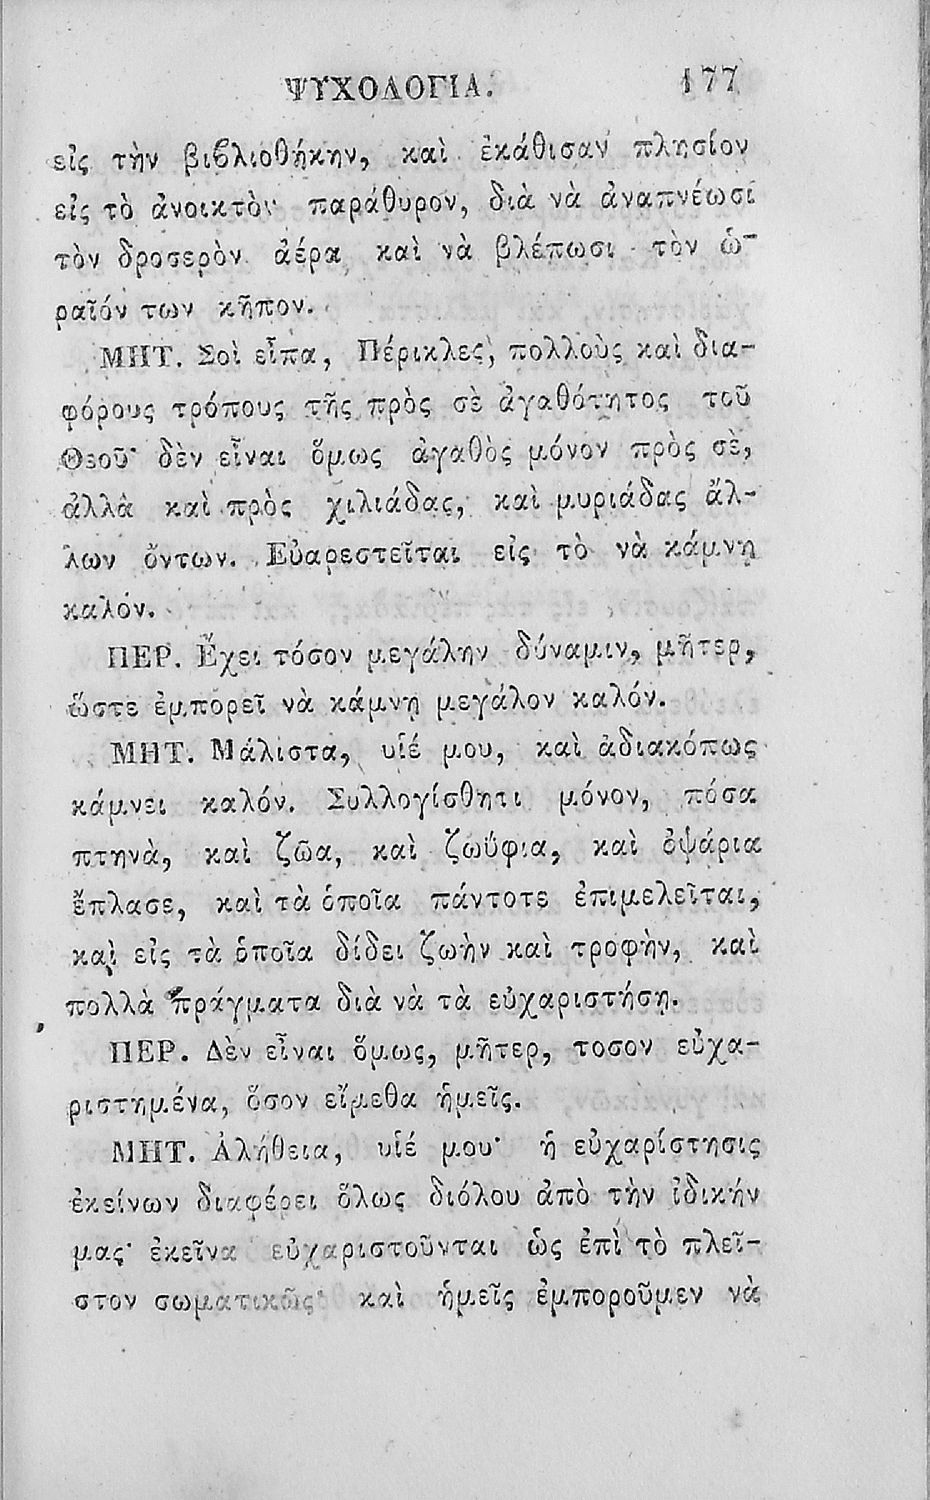 ΨΥΧΟΛΟΓΙΑ. 177
εἰς τὴν βιϐλιοθήκην, καὶ ἐκάθισαν πλησίον
εἰς τὸ ἀνοικτὸν παράθυρον, διὰ νὰ ἀναπνέωσι
τὸν δροσερὸν ἀέρα καὶ νὰ βλέπωσι τὸν ὡ-
ραῖόν των κῆπον.
ΜΗΤ. Σοὶ εἶπα, Πέρικλες, πολλοὺς καὶ δια-
φόρους τρόπους τῆς πρὸς σὲ ἀγαθότητος τοῦ
Θεοῦ· δὲν εἶναι ὅμως ἀγαθὸς μόνον πρὸς σὲ,
ἀλλὰ καὶ πρὸς χιλιάδας, καὶ μυριάδας ἄλ-
λων ὄντων. Εὐαρεστεῖται εἰς τὸ νὰ κάμνῃ
καλόν.
ΠΕΡ. Ἔχει τόσον μεγάλην δύναμιν, μῆτερ,
ὥστε ἐμπορεῖ νὰ κάμνῃ μεγάλον καλόν.
ΜΗΤ. Μάλιστα, υἱέ μου, καὶ ἀδιακόπως
κάμνει καλόν. Συλλογίσθητι μόνον, πόσα
πτηνὰ, καὶ ζῶα, καὶ ζωΰφια, καὶ ὀψάρια
ἔπλασε, καὶ τὰ ὁποῖα πάντοτε ἐπιμελεῖται,
καὶ εἰς τὰ ὁποῖα δίδει ζωὴν καὶ τροφὴν, καὶ
πολλὰ πράγματα διὰ νὰ τὰ εὐχαριστήσῃ.
ΠΕΡ. Δὲν εἶναι ὅμως, μῆτερ, τοσον εὐχα-
ριστημένα, ὅσον εἴμεθα ἡμεῖς.
ΜΗΤ. Ἀλήθεια, υἱέ μου· ἡ εὐχαρίστησις
ἐκείνων διαφέρει ὅλως διόλου ἀπὸ τὴν ἰδικήν
μας· ἐκεῖνα εὐχαριστοῦνται ὡς ἐπὶ τὸ πλεῖ-
στον σωματικῶς· καὶ ἡμεῖς ἐμποροῦμεν νὰ